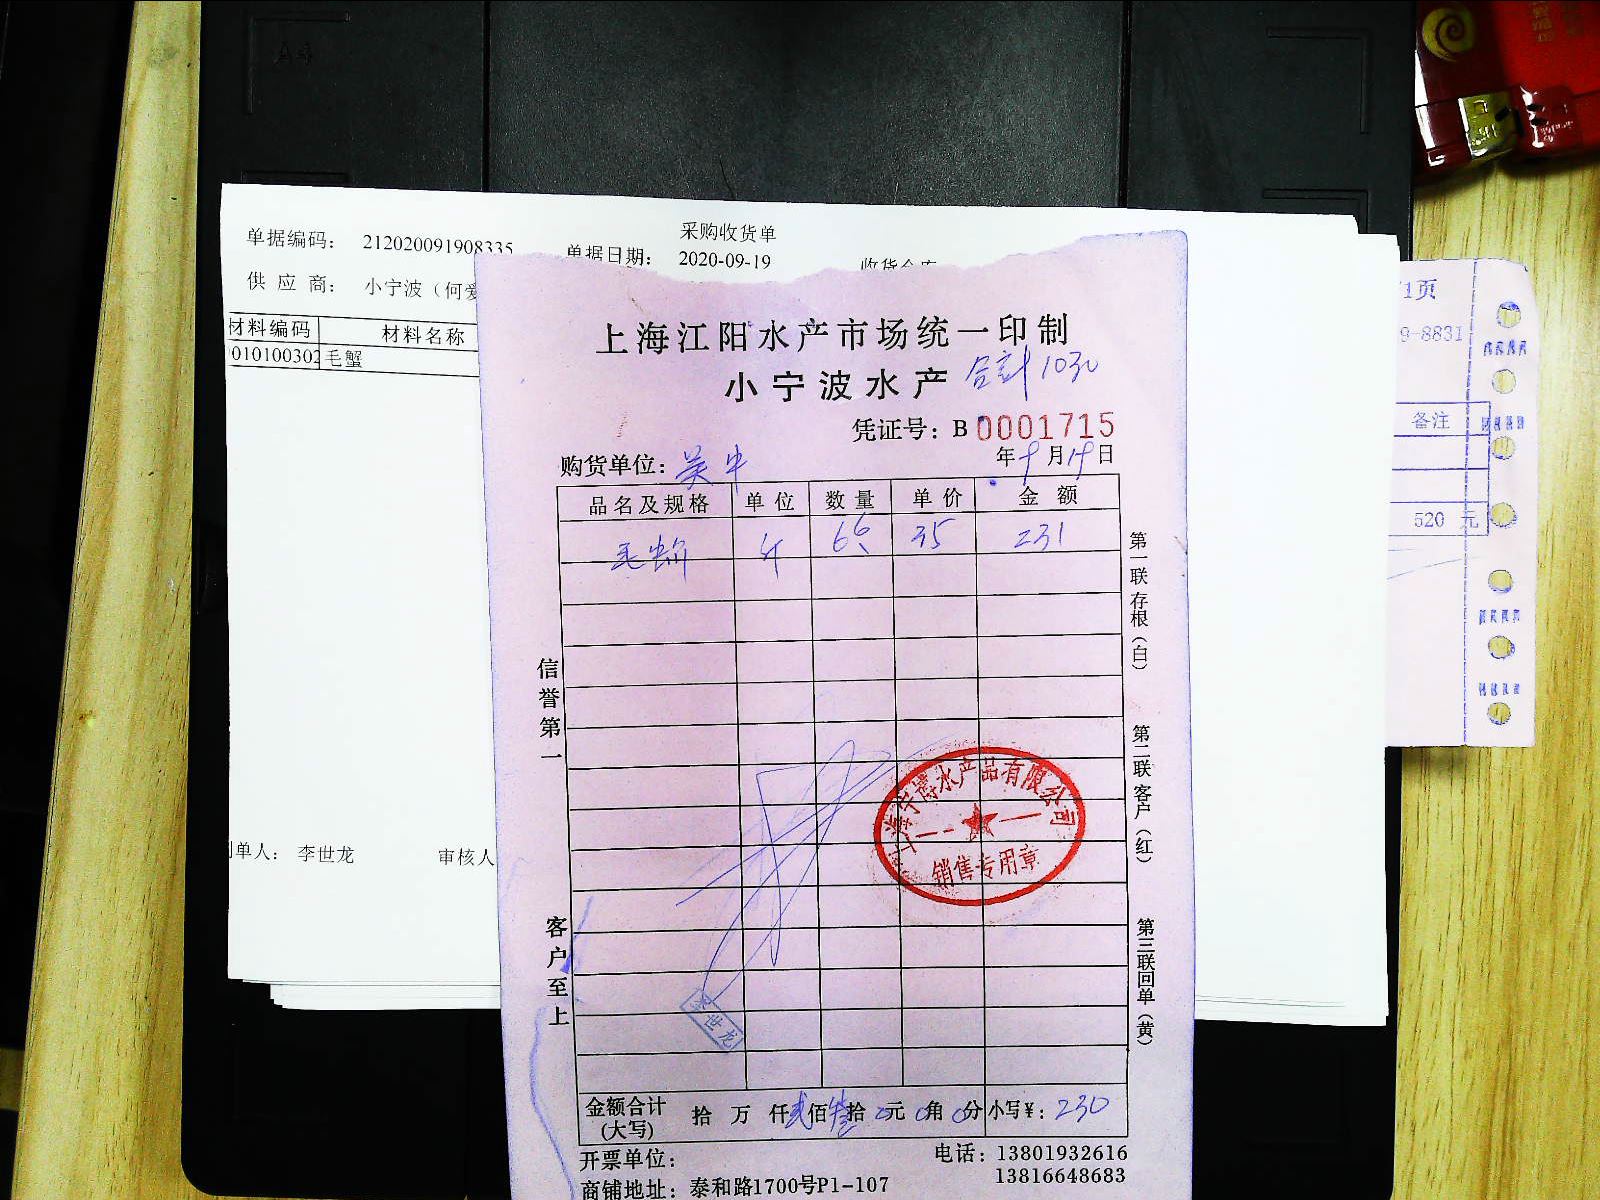 采购收货单
单据编码： 212020091908335 单据日期： 2020-09-19
供 应 商： 小宁波（何爱
材料编码 材料名称
010100302 毛蟹
制单人： 李世龙 审核人
上海江阳水产市场统一印制
小宁波水产 合计1030
凭证号：B 0001715
购货单位： 吴中 年 9 月 19 日
品名及规格 单位 数量 单价 金额
毛蟹 斤 6.6 35 231
信誉第一
客户至上
第一联存根（白）
第二联客户（红）
第三联回单（黄）
上海宁博水产品有限公司
销售专用章
李世龙
金额合计（大写） 拾 万 仟 贰 佰 叁 拾 0 元 0 角 0 分 小写¥： 230
开票单位： 电话：13801932616
13816648683
商铺地址：泰和路1700号P1-107
/1页
9-8831
备注
520 元